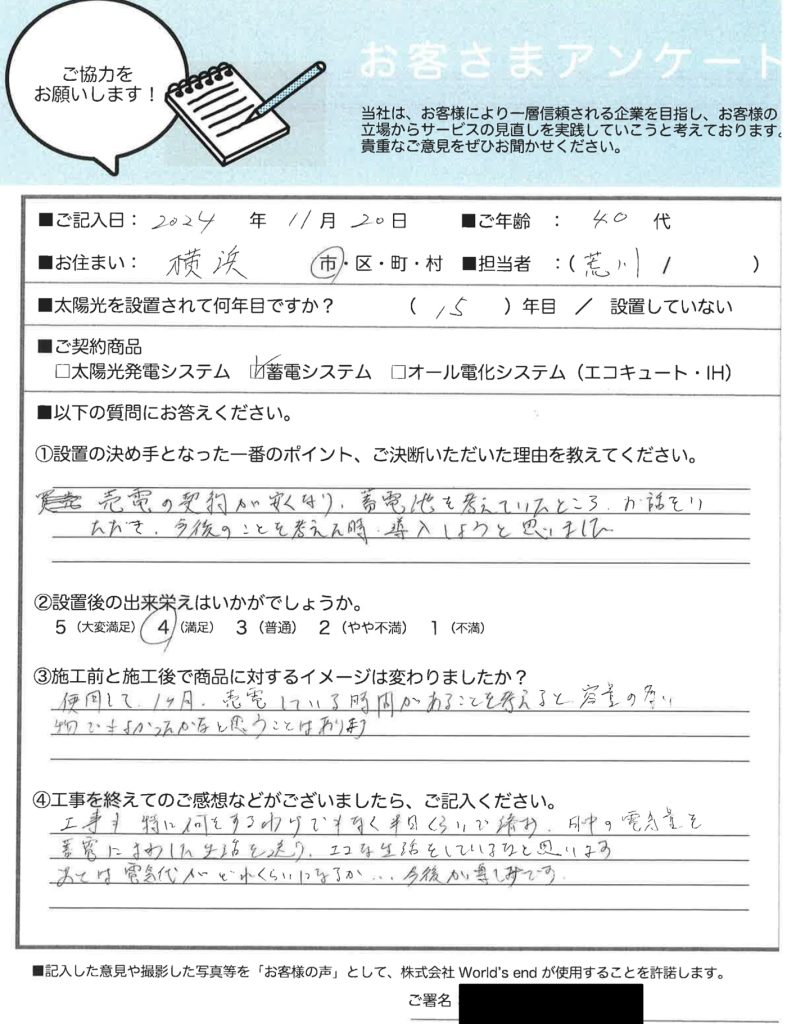 ご協力を
お願いします！
お客さまアンケート
当社は、お客様により一層信頼される企業を目指し、お客様の
立場からサービスの見直しを実践していこうと考えております。
貴重なご意見をぜひお聞かせください。
■ご記入日： 2024 年 11月 20日 ■ご年齢 ： 40 代
■お住まい： 横浜 市・区・町・村 ■担当者 ：( 荒川 / )
■太陽光を設置されて何年目ですか？ （ 15 ）年目 ／ 設置していない
■ご契約商品
□太陽光発電システム ☑蓄電システム □オール電化システム（エコキュート・IH）
■以下の質問にお答えください。
①設置の決め手となった一番のポイント、ご決断いただいた理由を教えてください。
売電の契約が安くなり、蓄電池を考えていたところ、お話をい
ただき、今後のことを考えた時、導入しようと思いました
②設置後の出来栄えはいかがでしょうか。
5（大変満足） 4（満足） 3（普通） 2（やや不満） 1（不満）
③施工前と施工後で商品に対するイメージは変わりましたか？
使用して、1ヶ月、売電している時間があることを考えると、容量の多い
物でもよかったかなと思うことはあります
④工事を終えてのご感想などがございましたら、ご記入ください。
工事も特に何をするわけでもなく半日くらいで済み、日中の電気量を
蓄電にまわした生活を送り、エコな生活をしているなと思います
あとは電気代がどれくらいになるか... 今後が楽しみです。
■記入した意見や撮影した写真等を「お客様の声」として、株式会社 World's end が使用することを許諾します。
ご署名：